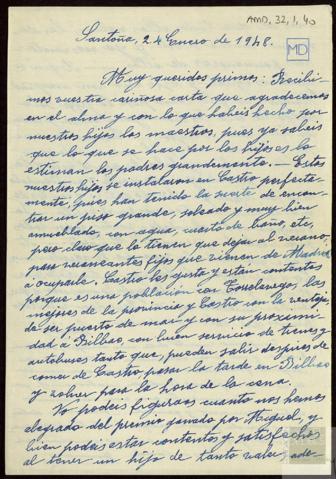 AMD, 32, 1, 40
MD
Santoña, 24 Enero de 1948.
Muy queridos primos: Recibi-
mos vuestra cariñosa carta que agradecemos
en el alma y con lo que habeis hecho por
nuestros hijos los maestros, pues ya sabeis
que lo que se hace por los hijos es lo
estiman los padres grandemente. — Estos
nuestros hijos se instalaron en Castro perfecta-
mente, pues han tenido la suerte de encon-
trar un piso grande, soleado y muy bien
amueblado, con agua, cuarto de baño, etc,
pero claro que lo tienen que dejar al verano,
para veraneantes fijos que vienen de Madrid
á ocuparle. Castro les gusta y están contentos
porque es una población con Torrelavega, las
mejores de la provincia y Castro con la ventaja
de ser puerto de mar y con su proximi-
dad á Bilbao, con buen servicio de trenes y
autobuses tanto que, pueden salir después de
comer de Castro pasar la tarde en Bilbao
y volver para la hora de la cena.
Ya podeis figuraros cuanto nos hemos
alegrado del premio ganado por Miguel, y
bien podeis estar contentos y satisfechos
al tener un hijo de tanto valer, ade-